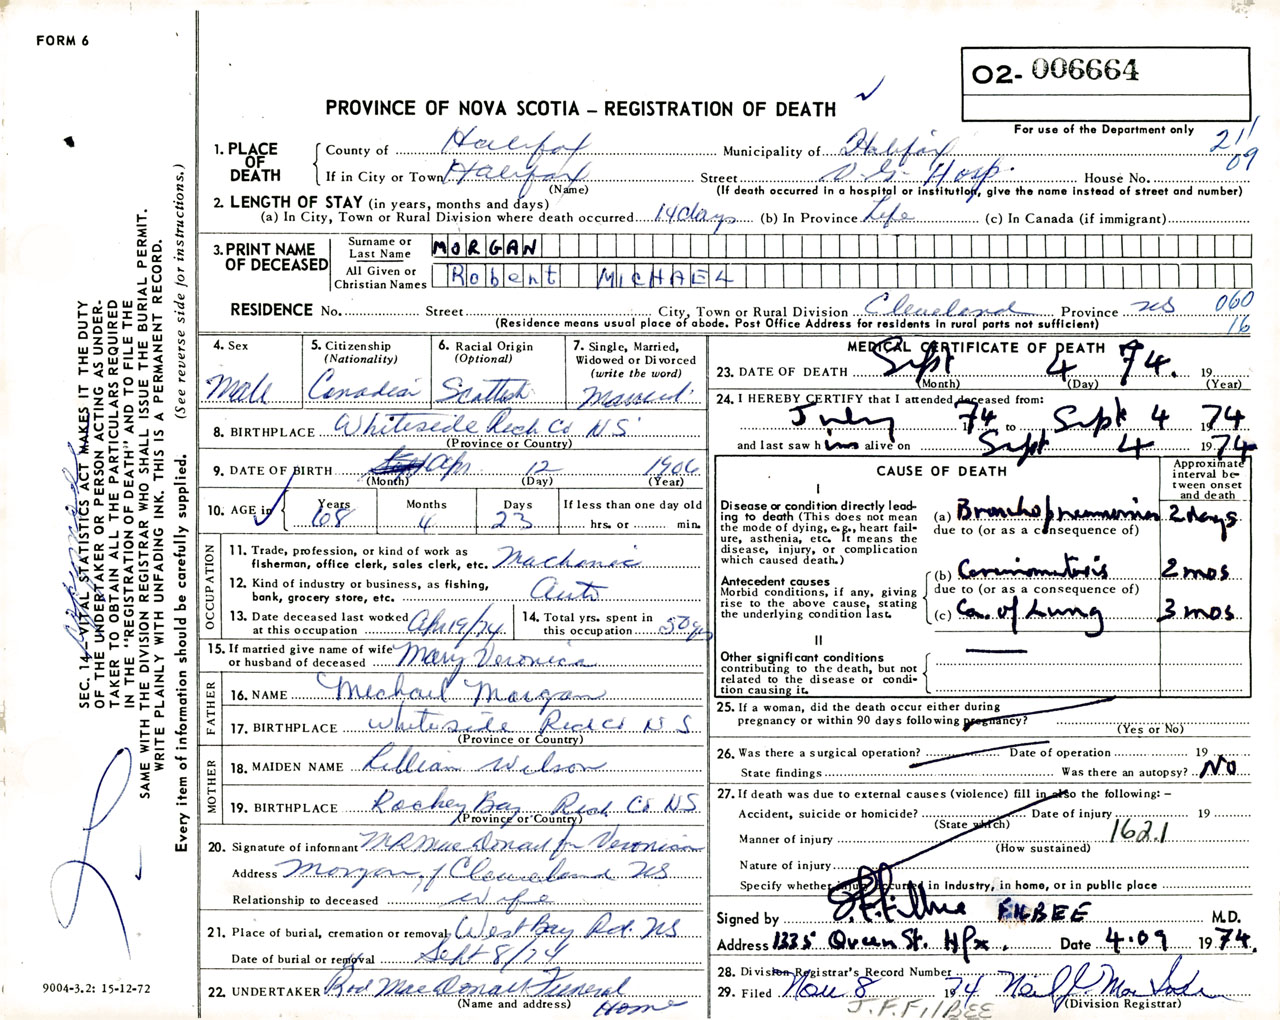 FORM 6
O2- 006664
PROVINCE OF NOVA SCOTIA – REGISTRATION OF DEATH
For use of the Department only
211
09
1. PLACE OF DEATH
County of Halifax Municipality of Halifax
If in City or Town Halifax Street V. G. Hosp. House No.
(Name) (If death occurred in a hospital or institution, give the name instead of street and number)
2. LENGTH OF STAY (in years, months and days)
(a) In City, Town or Rural Division where death occurred 14 days (b) In Province Life (c) In Canada (if immigrant)
3. PRINT NAME OF DECEASED
Surname or Last Name MORGAN
All Given or Christian Names Robent MICHAEL
RESIDENCE No. Street City, Town or Rural Division Cleveland Province NS 060
(Residence means usual place of abode. Post Office Address for residents in rural parts not sufficient) 16
4. Sex Male
5. Citizenship (Nationality) Canadian
6. Racial Origin (Optional) Scottish
7. Single, Married, Widowed or Divorced (write the word) Married
8. BIRTHPLACE Whiteside Rich Co NS
(Province or Country)
9. DATE OF BIRTH Apr 12 1906
(Month) (Day) (Year)
10. AGE in Years 68 Months 4 Days 23 If less than one day old hrs. or min.
OCCUPATION
11. Trade, profession, or kind of work as fisherman, office clerk, sales clerk, etc. Machanic
12. Kind of industry or business, as fishing, bank, grocery store, etc. Auto
13. Date deceased last worked at this occupation Apr 19/74
14. Total yrs. spent in this occupation 50 yrs
15. If married give name of wife or husband of deceased Mary Veronica
FATHER
16. NAME Michael Morgan
17. BIRTHPLACE Whiteside Rich Co NS
(Province or Country)
MOTHER
18. MAIDEN NAME Lillian Wilson
19. BIRTHPLACE Rockey Bay Rich. Co NS
(Province or Country)
20. Signature of informant MacDonald for Veronica
Address Morgan of Cleveland NS
Relationship to deceased Wife
21. Place of burial, cremation or removal West Bay Rd. NS
Date of burial or removal Sept 8/74
22. UNDERTAKER Rod MacDonald Funeral Home
(Name and address)
MEDICAL CERTIFICATE OF DEATH
23. DATE OF DEATH Sept 4 74. 19
(Month) (Day) (Year)
24. I HEREBY CERTIFY that I attended deceased from:
July 74 to Sept 4 1974
and last saw him alive on Sept 4 1974
CAUSE OF DEATH
Approximate interval between onset and death
I
Disease or condition directly leading to death (This does not mean the mode of dying, e.g., heart failure, asthenia, etc. It means the disease, injury, or complication which caused death.)
(a) Bronchopneumonia 2 days
due to (or as a consequence of)
Antecedent causes
Morbid conditions, if any, giving rise to the above cause, stating the underlying condition last.
(b) Carcinomatosis 2 mos
due to (or as a consequence of)
(c) Ca. of Lung 3 mos
II
Other significant conditions
contributing to the death, but not related to the disease or condition causing it.
25. If a woman, did the death occur either during pregnancy or within 90 days following pregnancy?
(Yes or No)
26. Was there a surgical operation? Date of operation 19
State findings Was there an autopsy? NO
27. If death was due to external causes (violence) fill in also the following: –
Accident, suicide or homicide? Date of injury 19
(State which)
Manner of injury 162.1
(How sustained)
Nature of injury
Specify whether injury occurred in Industry, in home, or in public place
Signed by J. F. Filbee FILBEE M.D.
Address 1335 Queen St. Hfx. Date 4.09 1974.
28. Division Registrar's Record Number
29. Filed Nov 8 1974
(Division Registrar)
J. F. FILBEE
SEC. 14—VITAL STATISTICS ACT MAKES IT THE DUTY
OF THE UNDERTAKER OR PERSON ACTING AS UNDER-
TAKER TO OBTAIN ALL THE PARTICULARS REQUIRED
IN THE "REGISTRATION OF DEATH" AND TO FILE THE
SAME WITH THE DIVISION REGISTRAR WHO SHALL ISSUE THE BURIAL PERMIT.
WRITE PLAINLY WITH UNFADING INK. THIS IS A PERMANENT RECORD.
Every item of information should be carefully supplied. (See reverse side for instructions.)
9004-3.2: 15-12-72